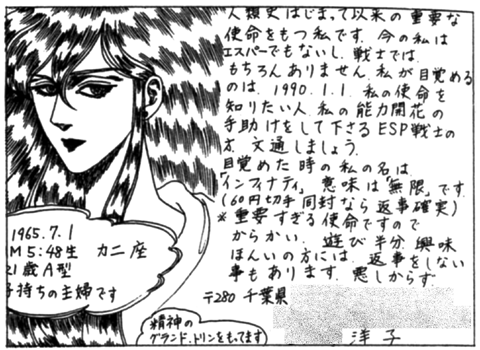 人類史はじまって以来の重要な
使命をもつ私です。今の私は
エスパーでもないし、戦士では
もちろんありません。私が目覚める
のは、1990.1.1. 私の使命を
知りたい人、私の能力開花の
手助けをして下さるESP戦士の
方、文通しましょう。
目覚めた時の私の名は、
「インフィナティ」意味は「無限」です。
(60円切手同封なら返事確実)
※重要すぎる使命ですので
からかい、遊び半分、興味
ほんいの方には、返事をしない
事もあります。悪しからず。
1965.7.1
M5:48生 カニ座
21歳A型
子持ちの主婦です
〒280 千葉県
精神の
グランド.トリンをもってます
洋子